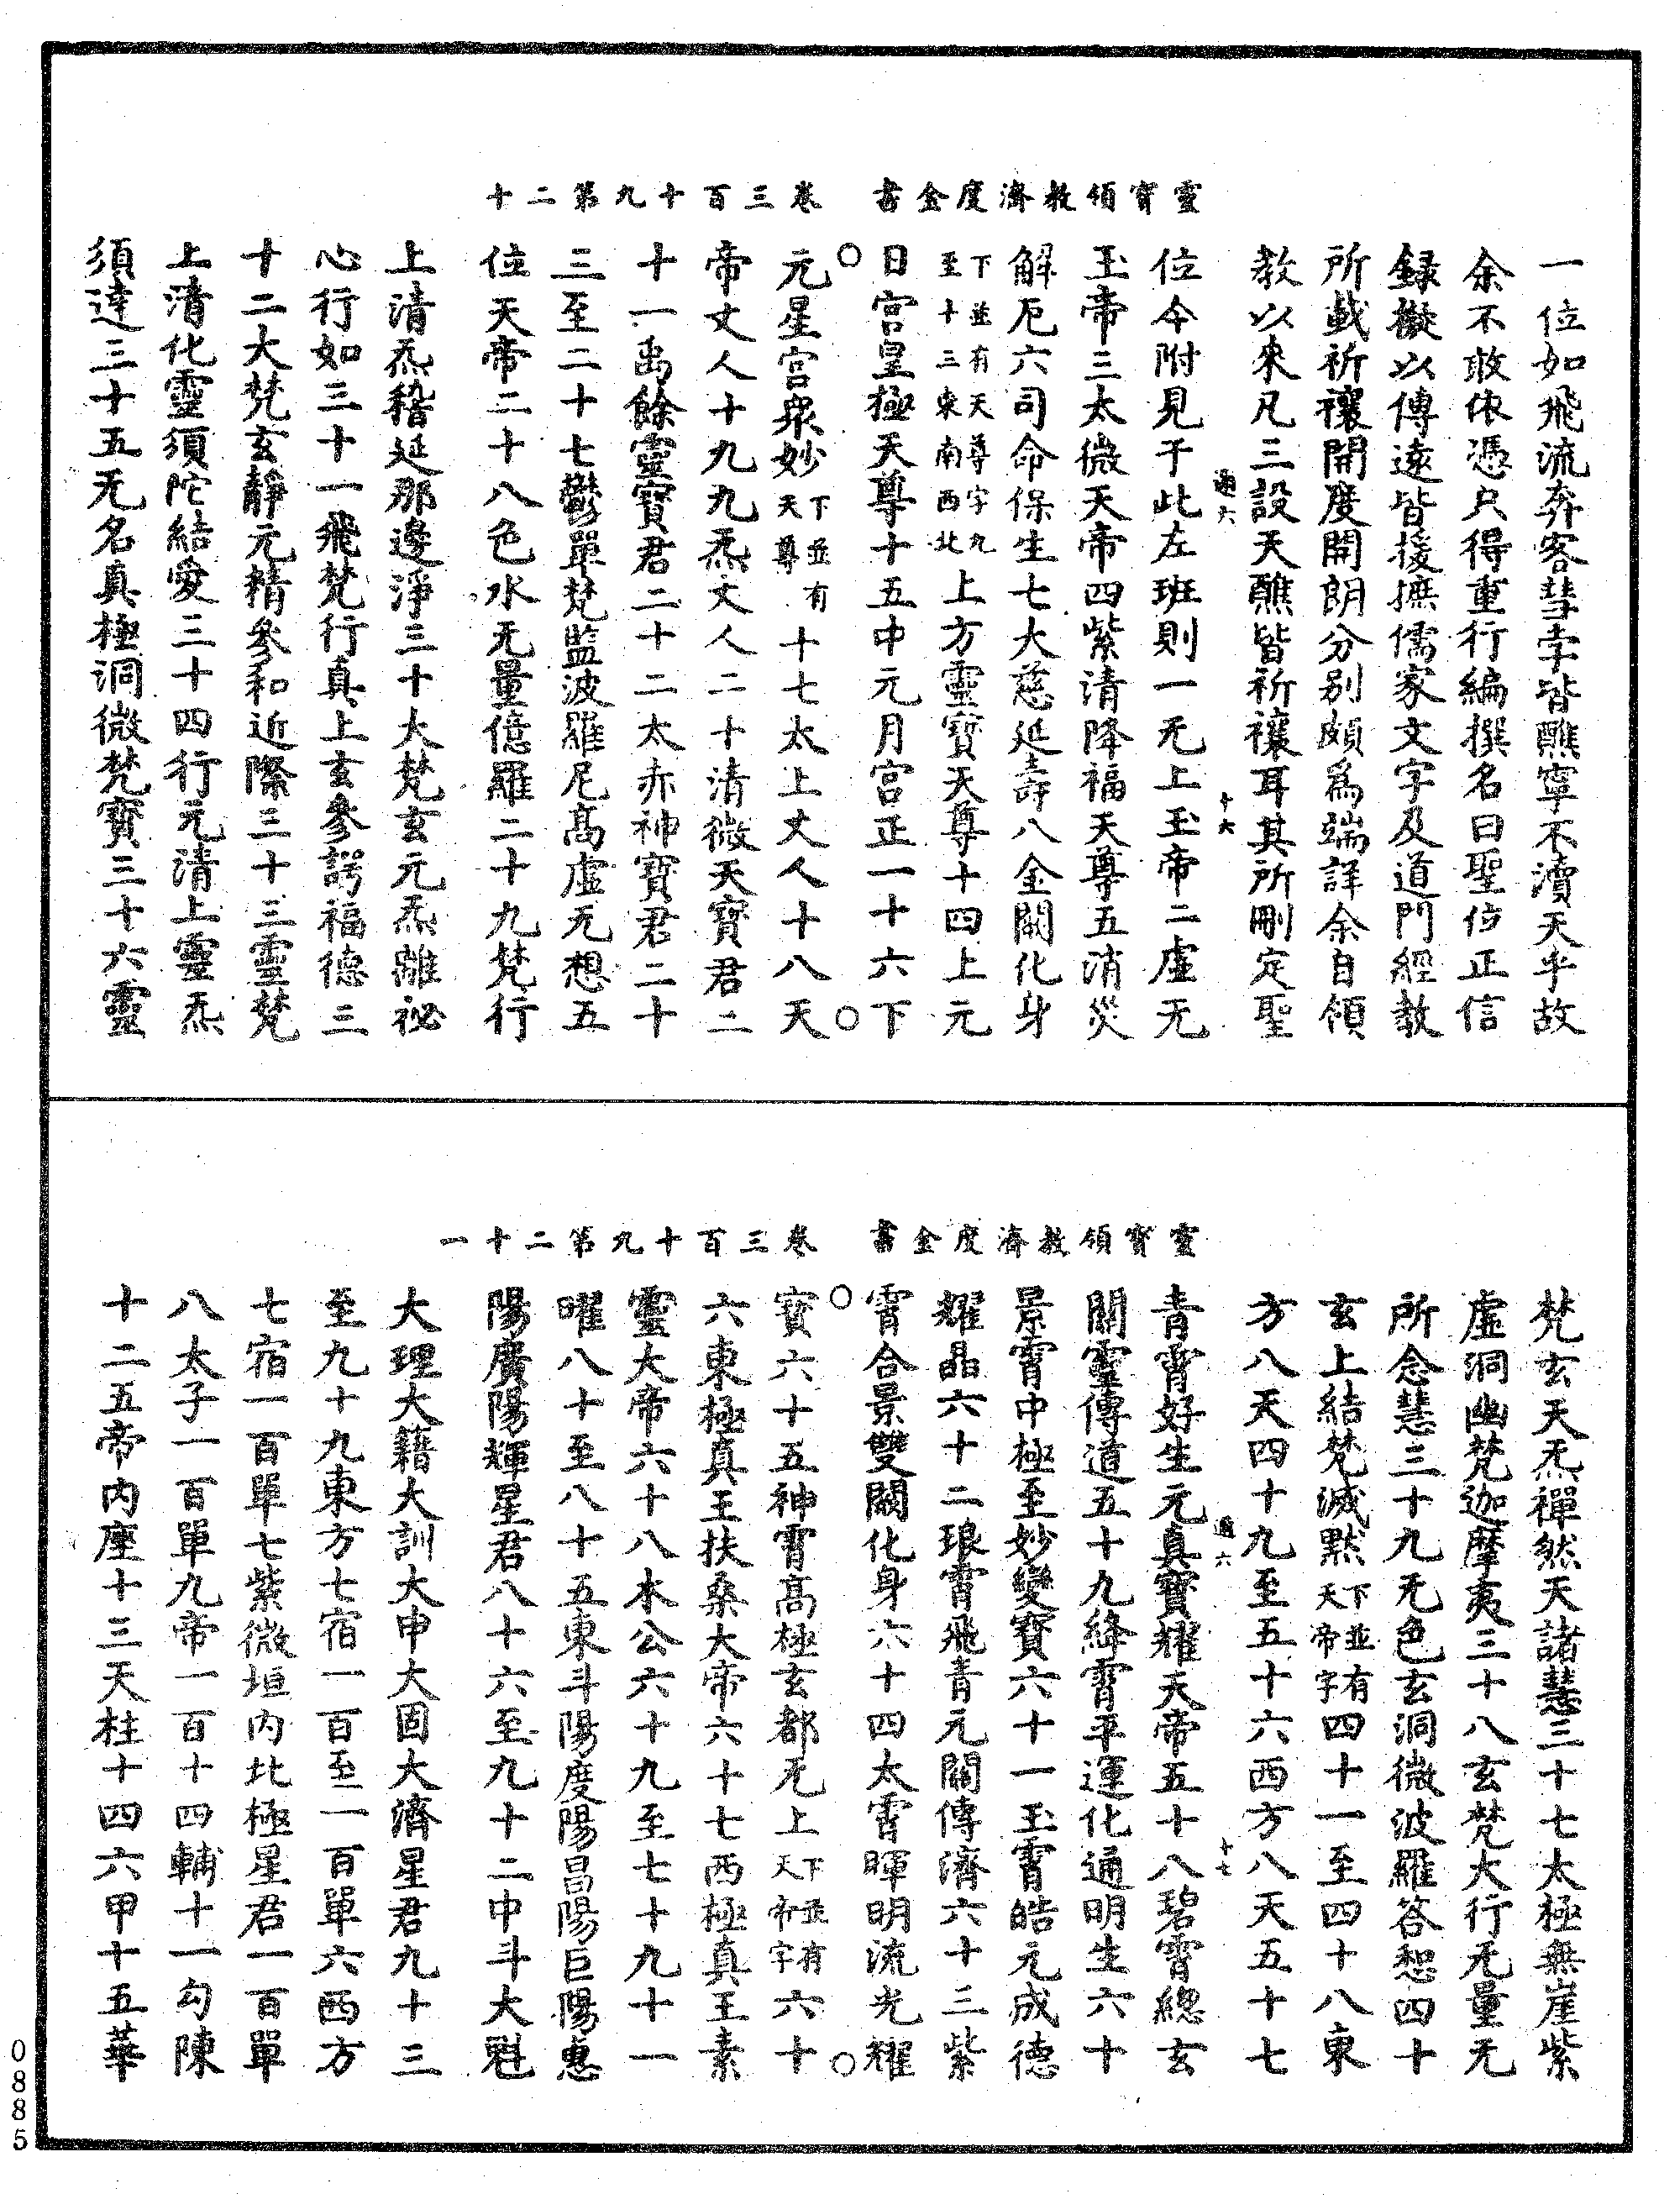 靈寶領教濟度金書　卷三百十九第二十
一位如飛流奔客彗孛皆醮寧不瀆天乎故
余不敢依憑只得重行編撰名曰聖位正信
録擬以傳遠皆援摭儒家文字及道門經教
所載祈禳開度開朗分別頗爲端詳余自領
教以來凡三設天醮皆祈禳耳其所刪定聖
通六　十六
位今附見于此左班則一无上玉帝二虛无
玉帝三太微天帝四紫清降福天尊五消災
解厄六司命保生七大慈延壽八金闕化身
下並有天尊字九至十三東南西北上方靈寶天尊十四上元
日宮皇極天尊十五中元月宮正一十六下
元星宮衆妙下並有天尊十七太上丈人十八天
帝丈人十九九炁丈人二十清微天寶君二
十一禹餘靈寶君二十二太赤神寶君二十
三至二十七鬱單梵監波羅尼髙虛无想五
位天帝二十八色水无量億羅二十九梵行
上清炁稽延那邊淨三十大梵玄元炁離祕
心行如三十一飛梵行真上玄參謣福德三
十二大梵玄靜元精參和近際三十三靈梵
上清化靈須陀結愛三十四行元清上靈炁
須達三十五无名真極洞微梵寶三十六靈
靈寶領教濟度金書　卷三百十九第二十一
梵玄天炁禪然天諸慧三十七太極無崖紫
虛洞幽梵迦摩夷三十八玄梵大行无量无
所念慧三十九无色玄洞微波羅答恕四十
玄上結梵滅黙下並有天帝字四十一至四十八東
方八天四十九至五十六西方八天五十七
通六　十七
青霄好生元真寶耀天帝五十八碧霄總玄
關靈傳道五十九絳霄平運化通明生六十
景霄中極至妙變寶六十一玉霄皓元成德
耀晶六十二琅霄飛青元關傳濟六十三紫
霄合景雙關化身六十四太霄暉明流光耀
寶六十五神霄髙極玄都无上下並有天帝字六十
六東極真王扶桑大帝六十七西極真王素
靈大帝六十八木公六十九至七十九十一
曜八十至八十五東斗陽度陽昌陽巨陽惠
陽廣陽輝星君八十六至九十二中斗大魁
大理大籍大訓大申大固大濟星君九十三
至九十九東方七宿一百至一百單六西方
七宿一百單七紫微垣内北極星君一百單
八太子一百單九帝一百十四輔十一勾陳
十二五帝内座十三天柱十四六甲十五華
0885